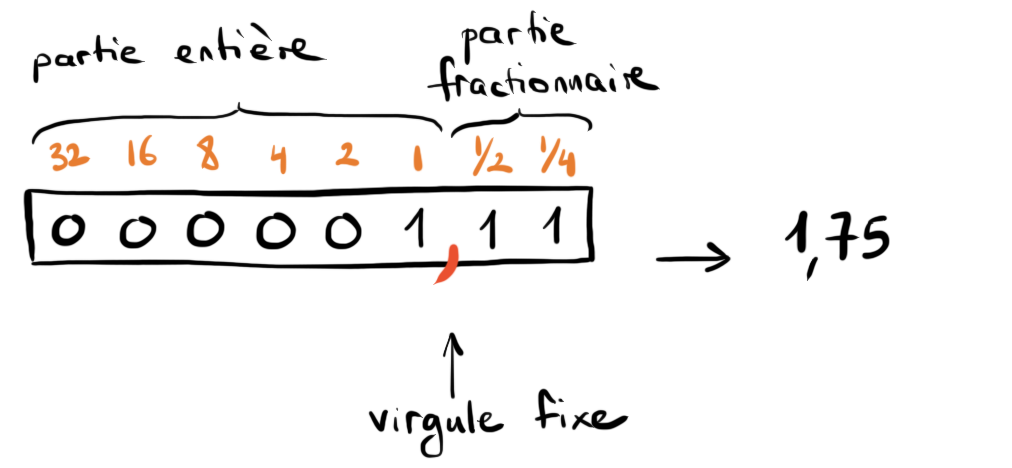 partie entière
partie fractionnaire
32 16 8 4 2 1 1/2 1/4
0 0 0 0 0 1 , 1 1 → 1,75
virgule fixe